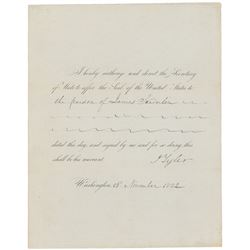 I hereby authorize and direct the Secretary
of State to affix the Seal of the United States to
the pardon of James
dated this day, and signed by me and for so doing this
shall be his warrant.
J Tyler
Washington, 18 November 1842